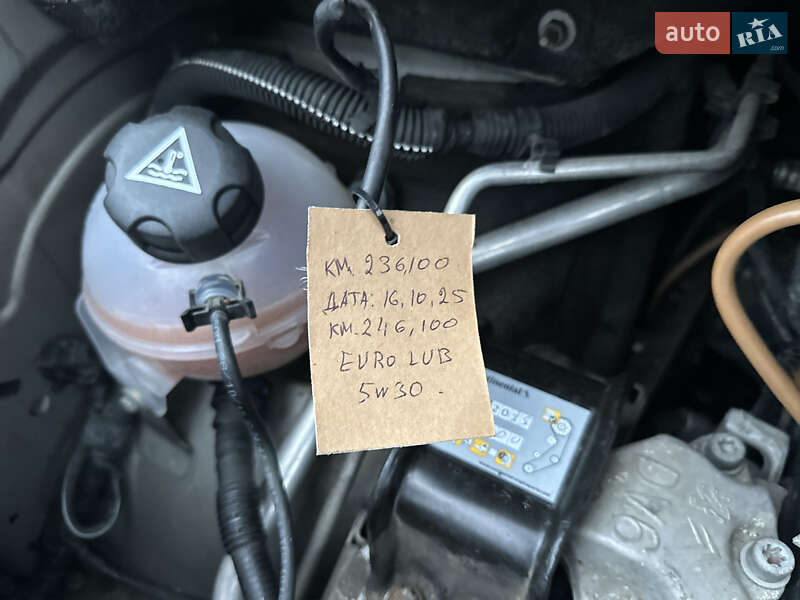 auto RIA.com
КМ. 236,100
ДАТА: 16,10,25
КМ. 246,100
EURO LUB
5W30.
DV6